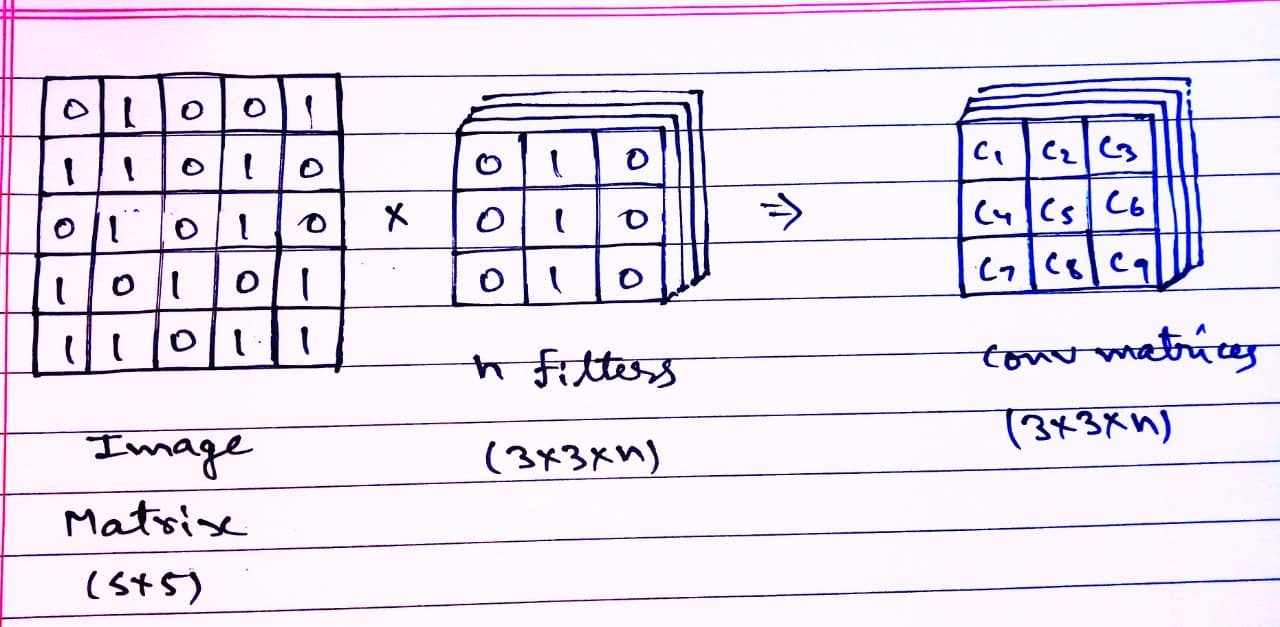 0 1 0 0 1
1 1 0 1 0
0 1 0 1 0
1 0 1 0 1
1 1 0 1 1
Image
Matrix
(5×5)
×
0 1 0
0 1 0
0 1 0
n filters
(3×3×n)
⇒
C1 C2 C3
C4 C5 C6
C7 C8 C9
conv matrices
(3×3×n)